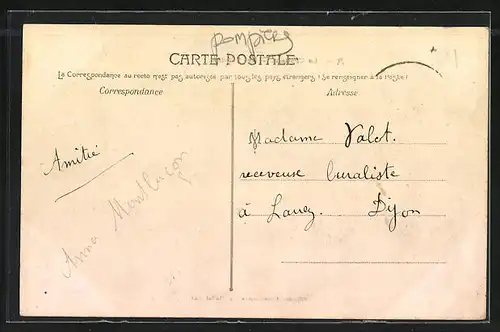 Pompiers
CARTE POSTALE
La Correspondance au recto n'est pas autorisée par tous les pays étrangers (Se renseigner à la Poste)
Correspondance
Adresse
Amitié
Anna Montluçon
Madame Valet.
receveuse buraliste
à Dijon